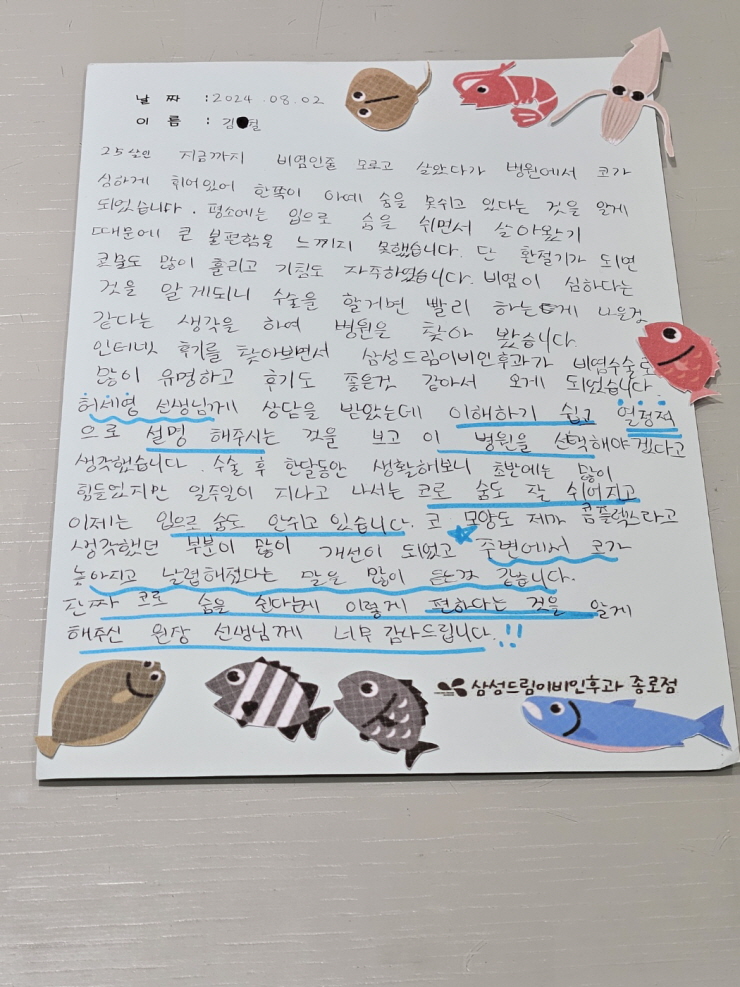 날 짜 : 2024.08.02
이 름 : 김 철
25살인 지금까지 비염인줄 모르고 살았다가 병원에서 코가
심하게 휘어있어 한쪽이 아예 숨을 못쉬고 있다는 것을 알게
되었습니다. 평소에는 입으로 숨을 쉬면서 살아왔기
때문에 큰 불편함은 느끼지 못했습니다. 단 환절기가 되면
콧물도 많이 흘리고 기침도 자주하였습니다. 비염이 심하다는
것을 알게되니 수술을 할거면 빨리 하는게 나을것
같다는 생각을 하여 병원을 찾아 봤습니다.
인터넷 후기를 찾아보면서 삼성드림이비인후과가 비염수술로
많이 유명하고 후기도 좋은것 같아서 오게 되었습니다.
허세형 선생님께 상담을 받았는데 이해하기 쉽고 열정적
으로 설명 해주시는 것을 보고 이 병원을 선택해야겠다고
생각했습니다. 수술 후 한달동안 생활해보니 초반에는 많이
힘들었지만 일주일이 지나고 나서는 코로 숨도 잘 쉬어지고
이제는 입으로 숨도 안쉬고 있습니다. 코 모양도 제가 콤플렉스라고
생각했던 부분이 많이 개선이 되었고 주변에서 코가
높아지고 날렵해졌다는 말을 많이 듣는것 같습니다.
진짜 코로 숨을 쉰다는게 이렇게 편하다는 것을 알게
해주신 원장 선생님께 너무 감사드립니다.!!
삼성드림이비인후과 종로점